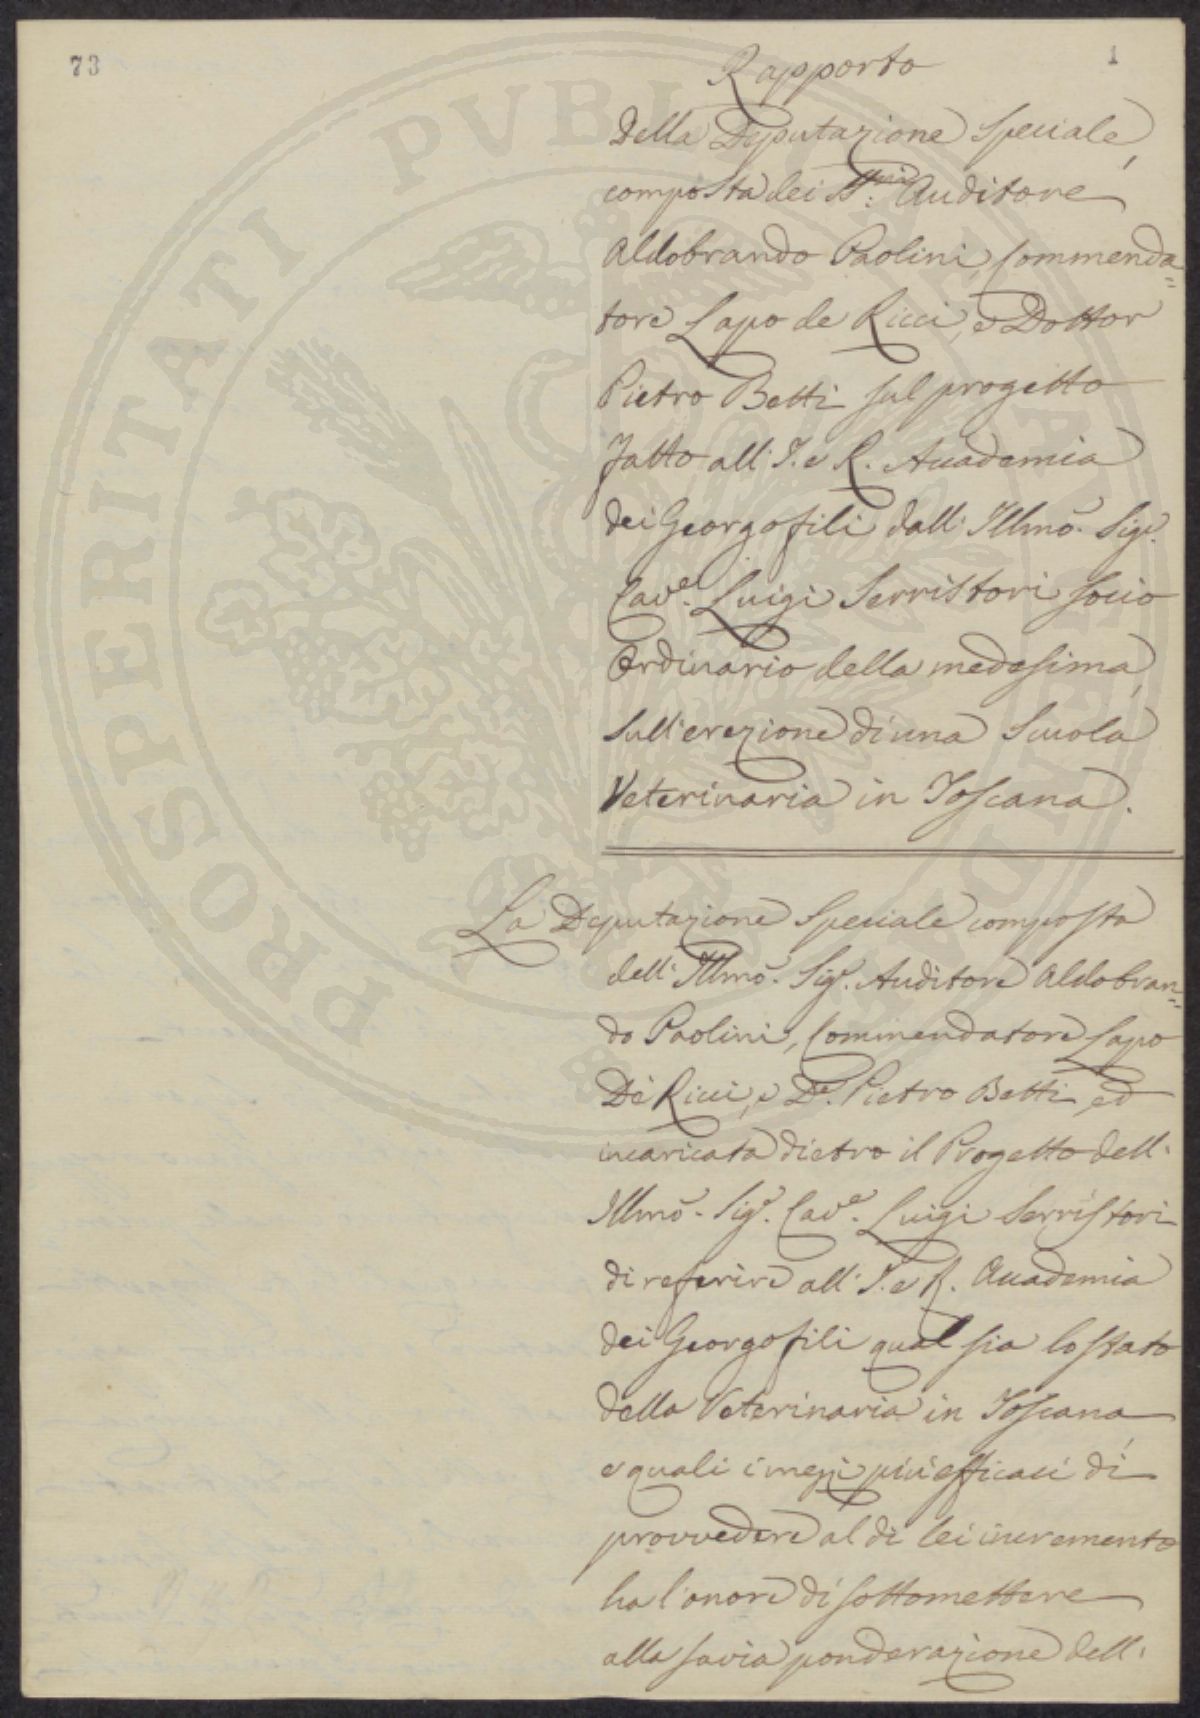 73
1
Rapporto
Della Deputazione Speciale,
composta dei Auditore
Aldobrando Paolini, Commenda=
tore Lapo de Ricci, e Dottor
Pietro Betti sul progetto
fatto all'I. e R. Accademia
dei Georgofili dall' Illmo. Sigr.
Cave. Luigi Serristori socio
Ordinario della medesima,
sull'erezione di una Scuola
Veterinaria in Toscana.
La Deputazione Speciale composta
dell' Illmo. Sigr. Auditore Aldobran=
do Paolini, Commendatore Lapo
De Ricci, e Dr. Pietro Betti ed
incaricata dietro il Progetto dell'
Illmo. Sigr. Cave. Luigi Serristori
di referire all' I. e R. Accademia
dei Georgofili qual sia lo stato
della Veterinaria in Toscana
e quali i mezzi più efficaci di
provvedere al di lei incremento
ha l'onore di sottomettere
alla savia ponderazione dell'
PROSPERITATI PVBLICAE AVGENDAE